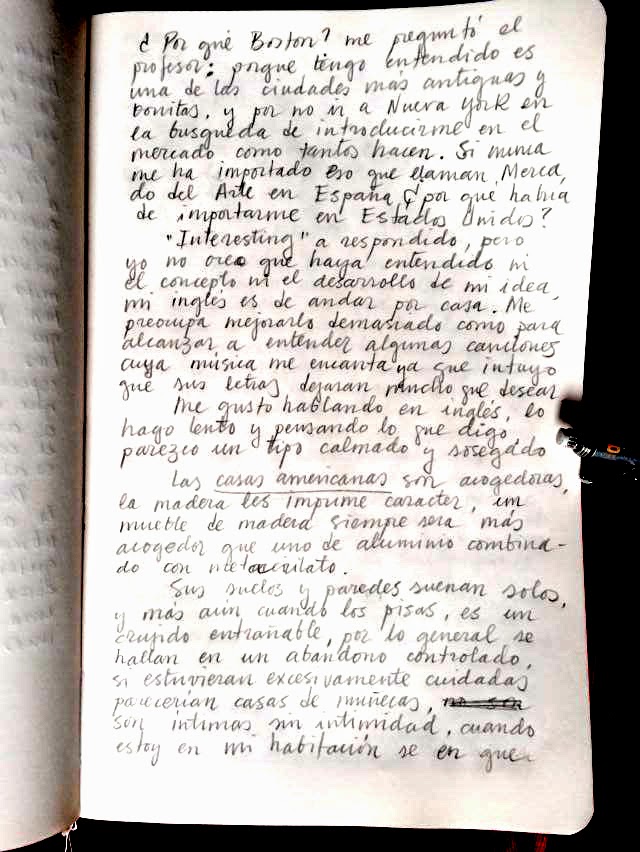 ¿ Por qué Boston? me preguntó el
profesor: porque tengo entendido es
una de las ciudades más antiguas y
bonitas, y por no ir a Nueva York en
la busqueda de introducirme en el
mercado como tantos hacen. Si nunca
me ha importado eso que llaman Merca,
do del Arte en España ¿por qué había
de importarme en Estados Unidos?
"Interesting" a respondido, pero
yo no creo que haya entendido ni
el concepto ni el desarrollo de mi idea,
mi inglés es de andar por casa. Me
preocupa mejorarlo demasiado como para
alcanzar a entender algunas canciones
cuya música me encanta ya que intuyo
que sus letras dejaran mucho que desear
Me gusto hablando en inglés, lo
hago lento y pensando lo que digo,
parezco un tipo calmado y sosegado
Las casas americanas son acogedoras,
la madera les imprime caracter, un
mueble de madera siempre sera más
acogedor que uno de aluminio combina-
do con metacrilato.
Sus suelos y paredes suenan solos,
y más aún cuando los pisas, es un
crujido entrañable, por lo general se
hallan en un abandono controlado,
si estuvieran excesivamente cuidadas
parecerían casas de muñecas, no son
son íntimas sin intimidad, cuando
estoy en mi habitación se en que